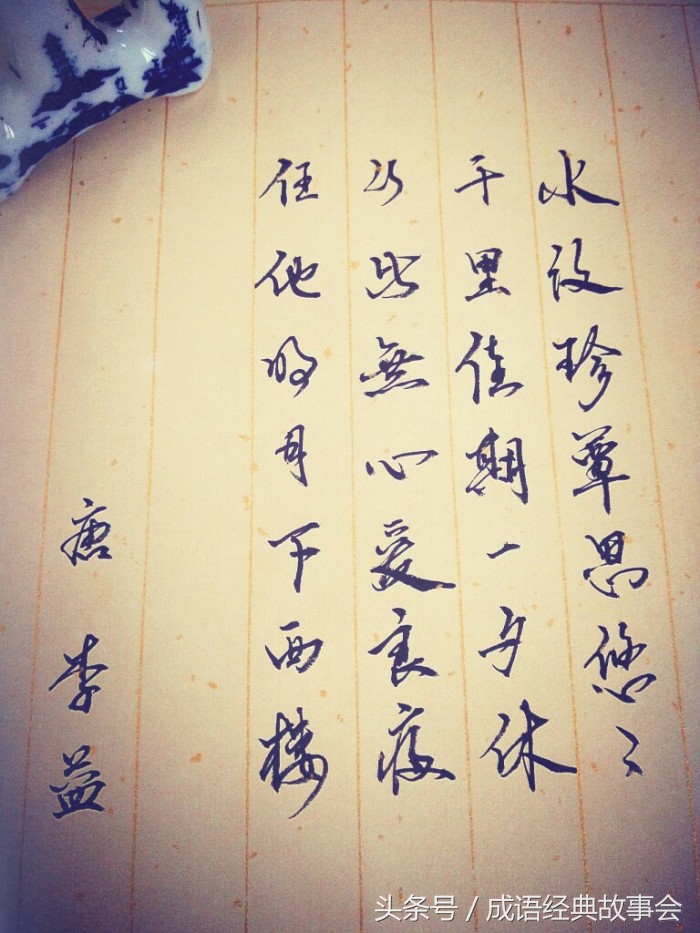 水纹珍簟思悠〻
千里佳期一夕休
从此無心爱良夜
任他明月下西楼
唐 李益
头条号 / 成语经典故事会